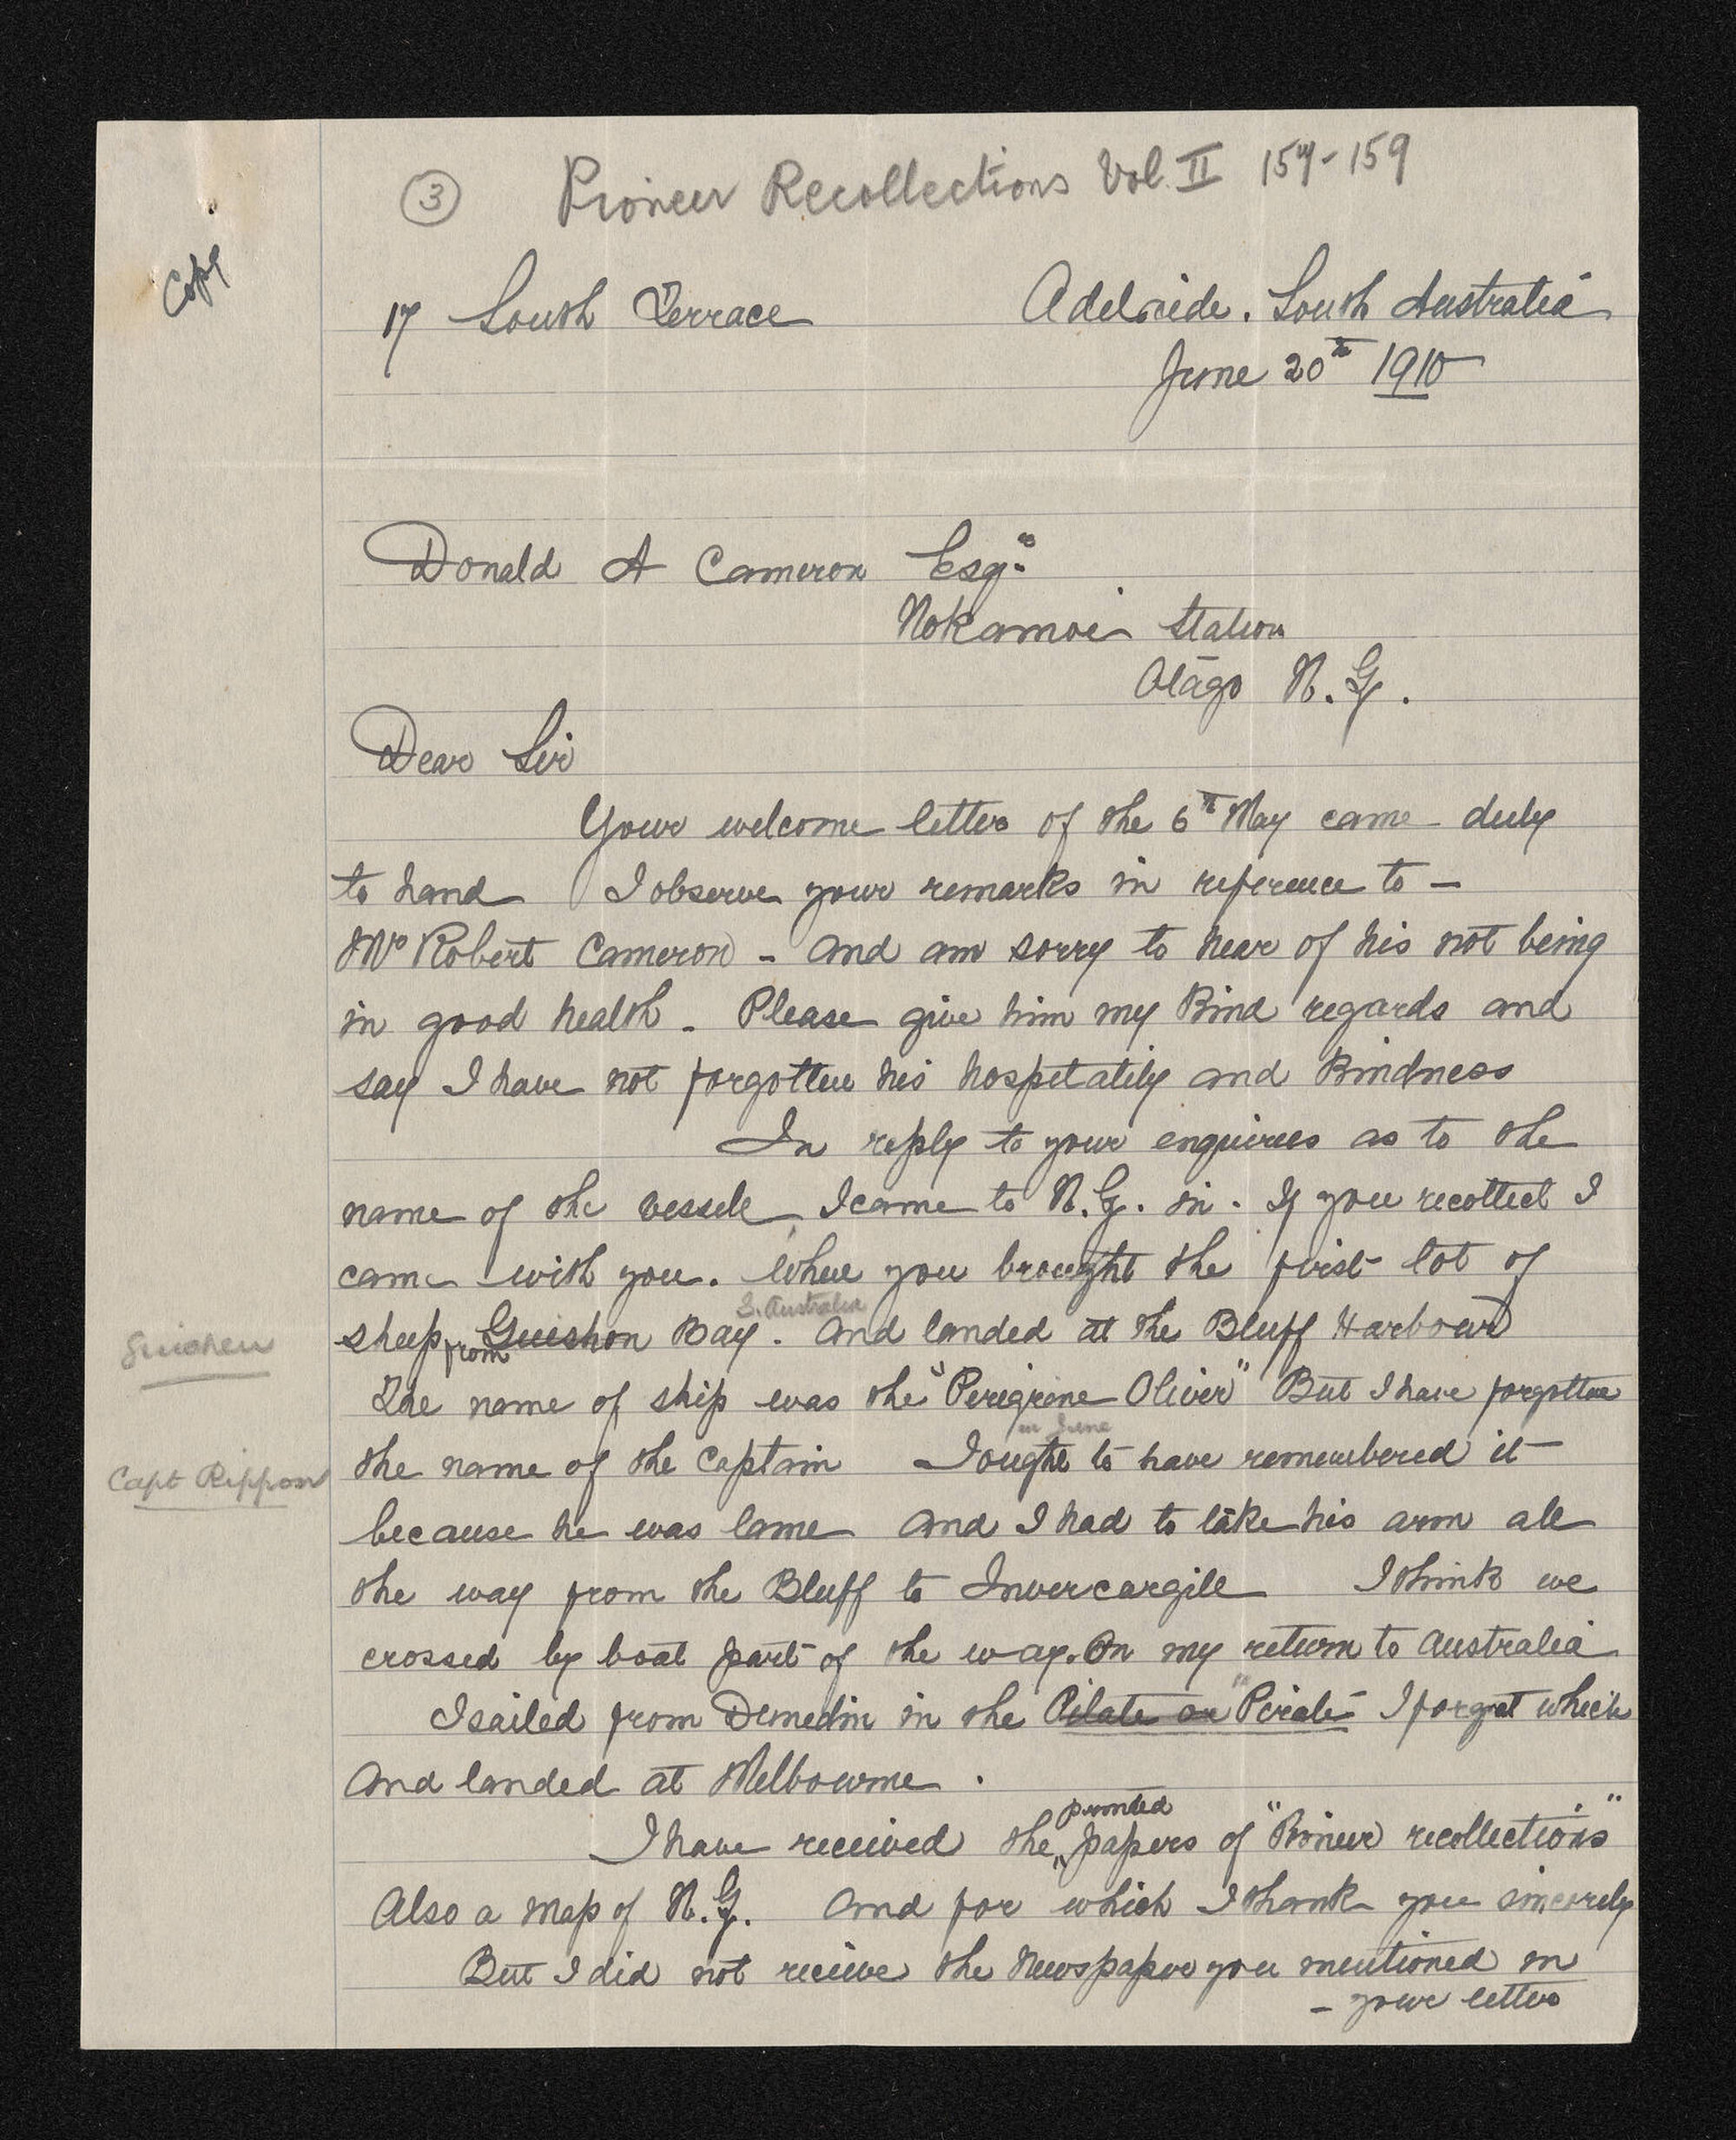 ③ Pioneer Recollections Vol. II 157-159
Copy
17 South Terrace Adelaide. South Australia
June 20th 1910
Donald A Cameron Esqre
Nokomai Station
Otago N.Z.
Dear Sir
Your welcome letter of the 6th May came duly
to hand I observe your remarks in reference to –
Mr Robert Cameron – and am sorry to hear of his not being
in good health – Please give him my Kind regards and
say I have not forgotten his hospitality and Kindness
In reply to your enquiries as to the
name of the vessell I came to N.Z. in. If you recollect I
came with you. When you brought the first lot of
S. Australia
sheep from Guishon Bay. and landed at the Bluff Harbour
Guichen
The name of ship was the "Peregrine Oliver" But I have forgotten
in June
the name of the Captain I ought to have remembered it
Capt Rippon
because he was lame and I had to take his arm all
the way from the Bluff to Invercargill I think we
crossed by boat part of the way. On my return to Australia
I sailed from Dunedin in the Pilate or "Pirate" I forget which
and landed at Melbourne.
printed
I have received the papers of "Pioneer recollections"
Also a map of N.Z. and for which I thank you sincerely
But I did not recieve the Newspaper you mentioned in
– your letter